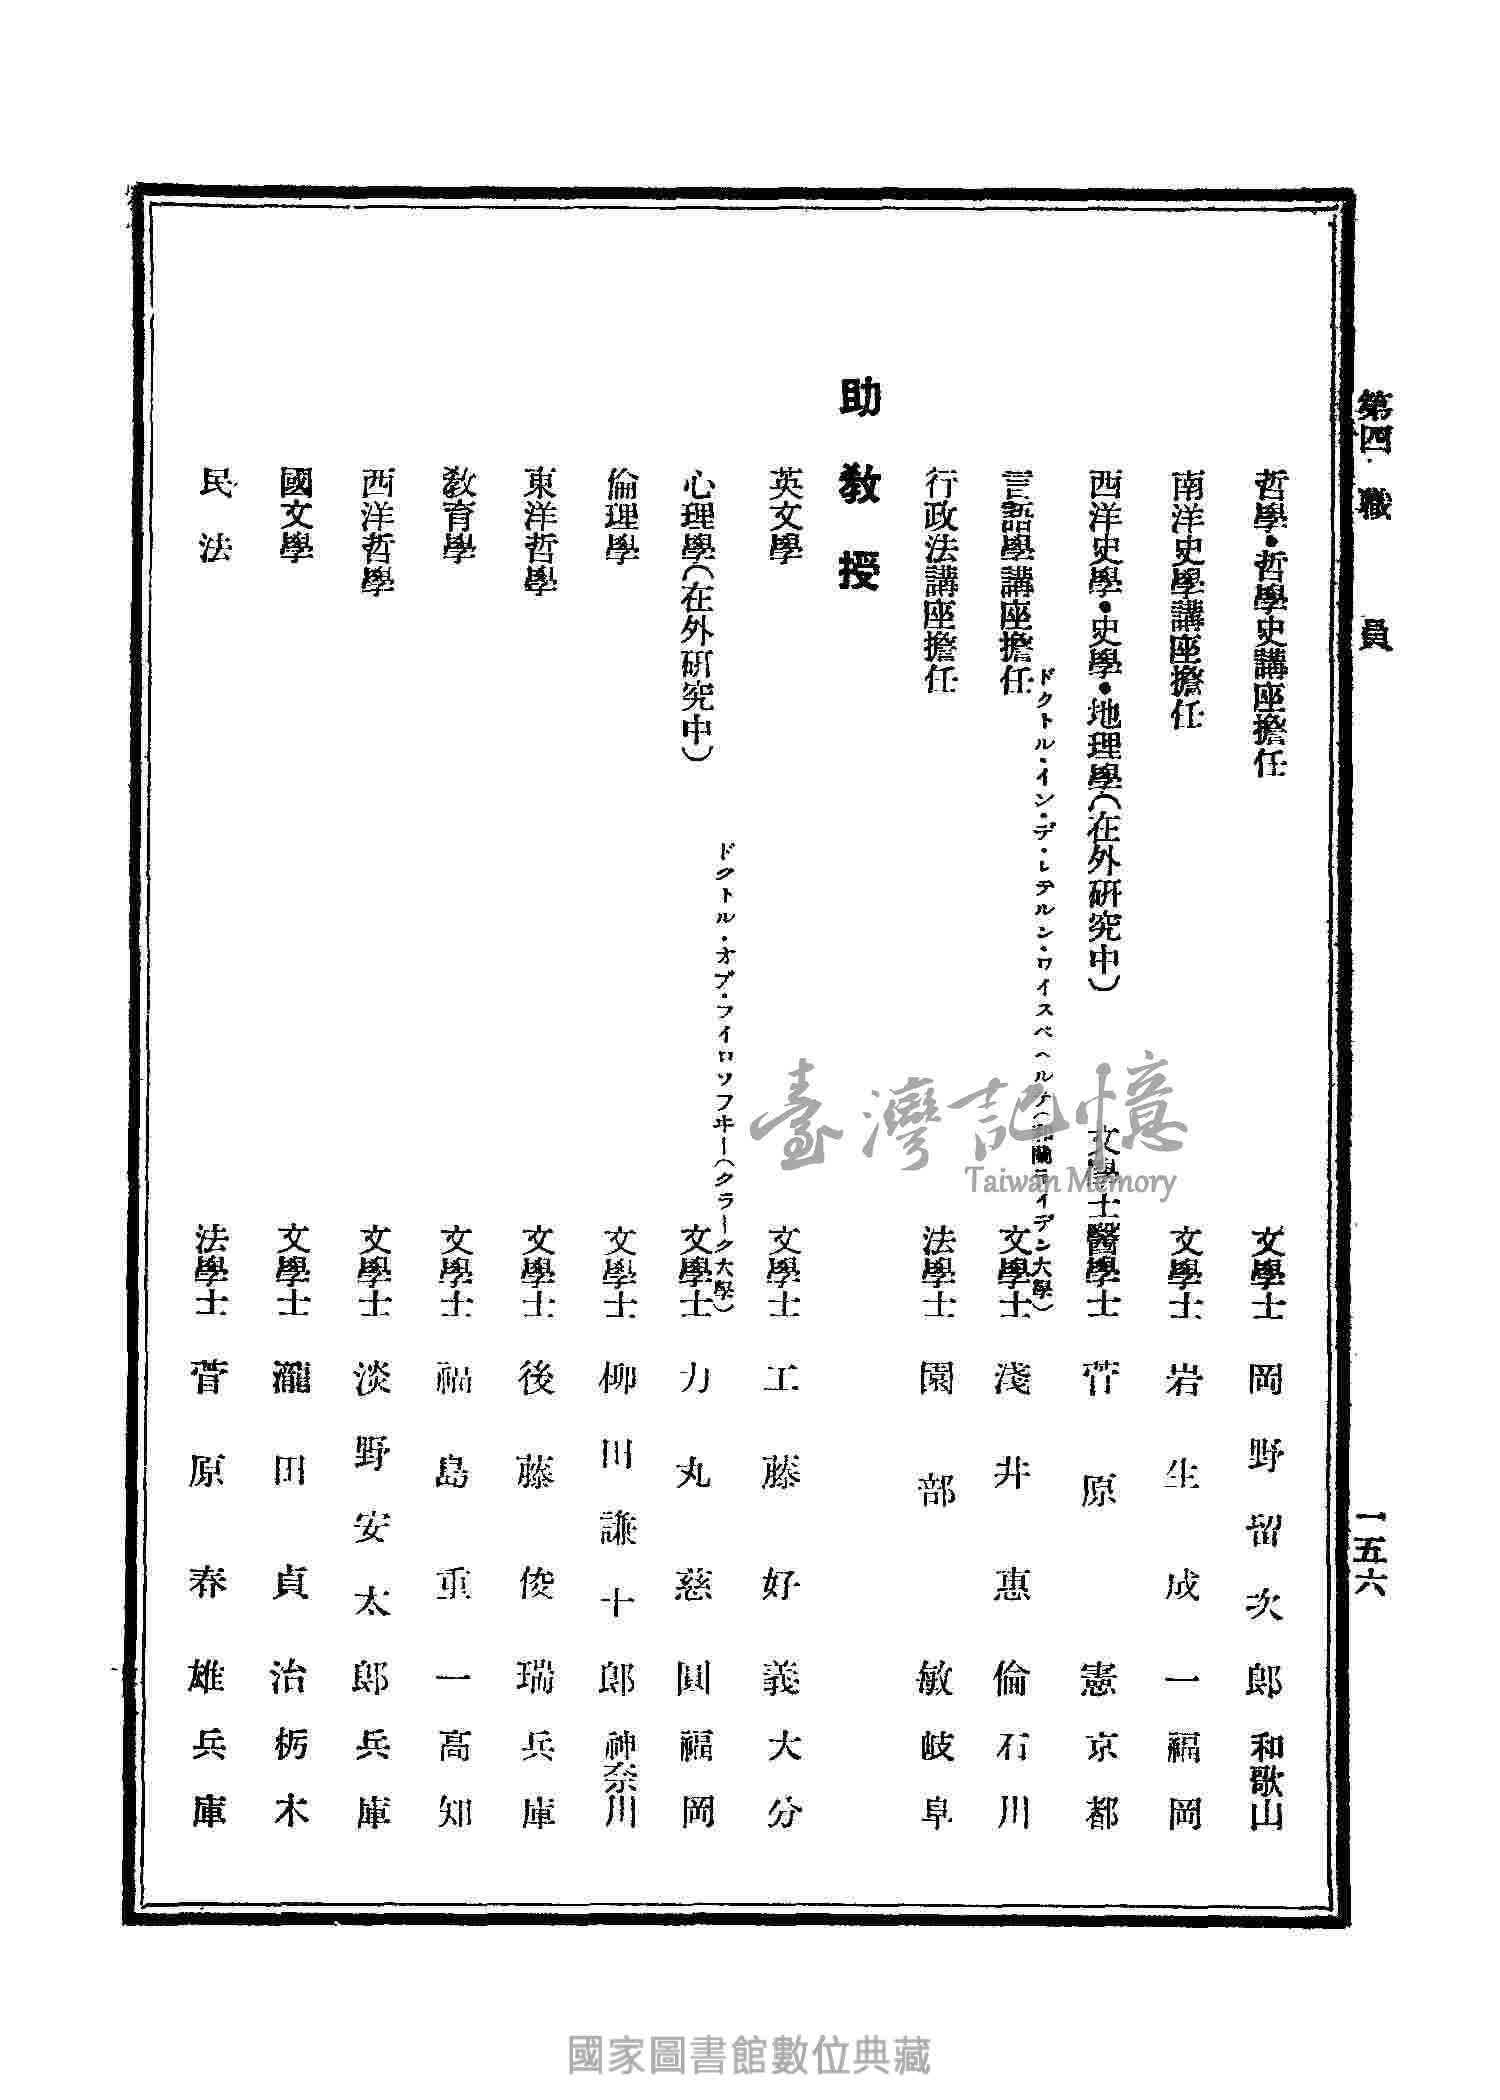 第四 職員
一五六
哲學・哲學史講座擔任 文學士 岡野留次郎 和歌山
南洋史學講座擔任 文學士 岩生成一 福岡
西洋史學・史學・地理學(在外研究中) 文學士 醫學士 菅原憲 京都
ドクトル・イン・デ・レテルン・ワイスベヘルテ(和蘭ライデン大學)
言語學講座擔任 文學士 淺井惠倫 石川
行政法講座擔任 法學士 園部敏 岐阜
助教授
英文學 文學士 工藤好義 大分
ドクトル・オブ・フイロソフヰー(クラーク大學)
心理學(在外研究中) 文學士 力丸慈圓 福岡
倫理學 文學士 柳田謙十郎 神奈川
東洋哲學 文學士 後藤俊瑞 兵庫
教育學 文學士 福島重一 高知
西洋哲學 文學士 淡野安太郎 兵庫
國文學 文學士 瀧田貞治 栃木
民法 法學士 菅原春雄 兵庫
臺灣記憶
Taiwan Memory
國家圖書館數位典藏